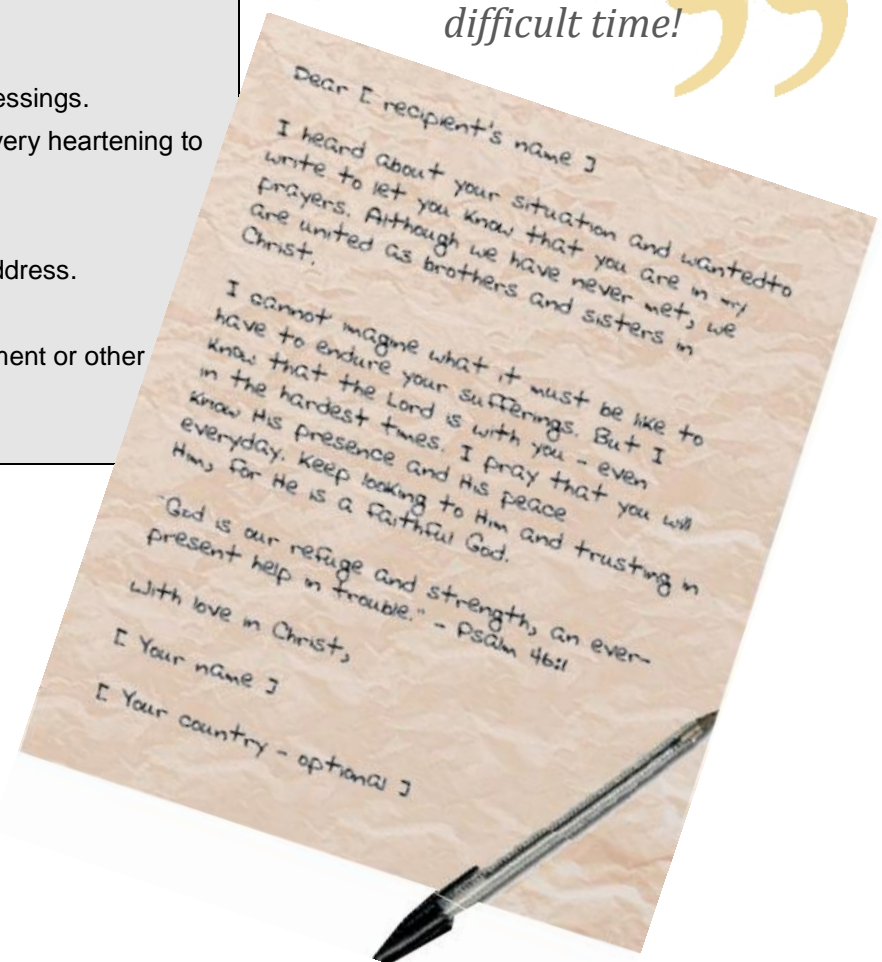 difficult time!
”
essings.
very heartening to
ddress.
ment or other
Dear [ recipient's name ]
I heard about your situation and wantedto
write to let you know that you are in my
prayers. Although we have never met, we
are united as brothers and sisters in
Christ.
I cannot imagine what it must be like to
have to endure your sufferings. But I
know that the Lord is with you - even
in the hardest times. I pray that you will
know His presence and His peace
everyday. Keep looking to Him and trusting in
Him, for He is a faithful God.
"God is our refuge and strength, an ever-
present help in trouble." - Psalm 46:1
With love in Christ,
[ Your name ]
[ Your country - optional ]